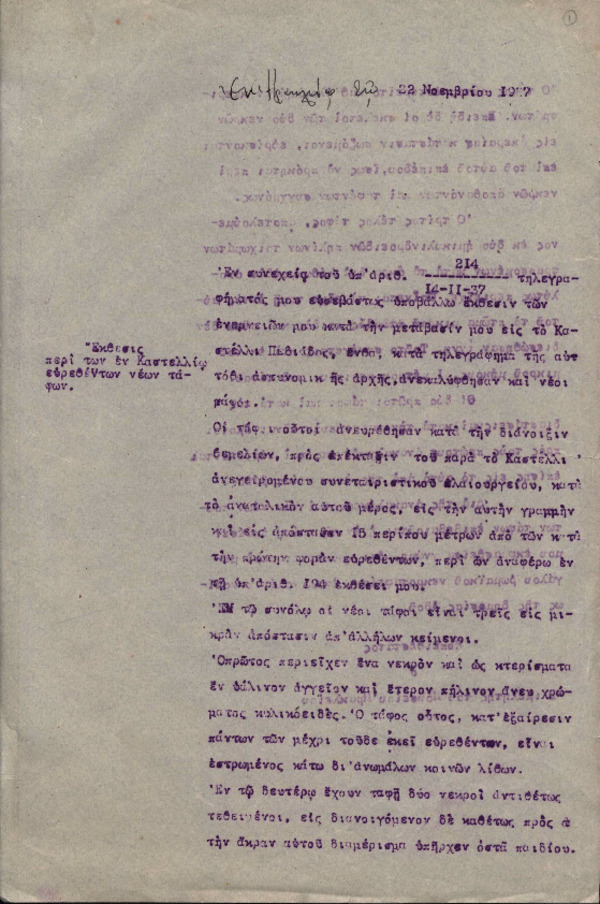 1
Ἐν Ἡρακλείῳ τῇ 22 Νοεμβρίου 1937
Ἐν συνεχείᾳ τοῦ ὑπ'ἀριθ. 214 / 14-II-37 τηλεγρα-
φήματός μου εὐσεβάστως ὑποβάλλω ἔκθεσιν τῶν
ἐνεργειῶν μου κατὰ τὴν μετάβασίν μου εἰς τὸ Κα-
στέλλι Πεδιάδος, ἔνθα, κατὰ τηλεγράφημα τῆς αὐτ
τόθι ἀστυνομικ ῆς ἀρχῆς, ἀνεκαλύφθησαν καὶ νέοι
τάφοι.
Ἔκθεσις
περὶ τῶν ἐν Καστελλίῳ
εὑρεθέντων νέων τά-
φων.
Οἱ τάφοι οὗτοι ἀνευρέθησαν κατὰ τὴν διάνοιξιν
θεμελίων, πρὸς ἐπέκτασιν τοῦ παρὰ τὸ Καστέλλι
ἀνεγειρομένου συνεταιριστικοῦ ἐλαιουργείου, κατὰ
τὸ ἀνατολικὸν αὐτοῦ μέρος, εἰς τὴν αὐτὴν γραμμὴν
καὶ εἰς ἀπόστασιν 15 περίπου μέτρων ἀπὸ τῶν κατὰ
τὴν πρώτην φορὰν εὑρεθέντων, περὶ ὧν ἀναφέρω ἐν
τῇ ὑπ'ἀριθ. ἐκθέσει μου.
Ἐν τῷ συνόλῳ οἱ νέοι τάφοι εἶναι τρεῖς εἰς μι-
κρὰν ἀπόστασιν ἀπ'ἀλλήλων κείμενοι.
Ὁπρῶτος περιεῖχεν ἕνα νεκρὸν καὶ ὡς κτερίσματα
ἓν ὑάλινον ἀγγεῖον καὶ ἕτερον πήλινον ἄνευ χρώ-
ματος κυλικόειδὲς. Ὁ τάφος οὗτος, κατ'ἐξαίρεσιν
πάντων τῶν μέχρι τοῦδε ἐκεῖ εὑρεθέντων, εἶναι
ἐστρωμένος κάτω δι'ἀνωμάλων κοινῶν λίθων.
Ἐν τῷ δευτέρῳ ἔχουν ταφῆ δύο νεκροὶ ἀντιθέτως
τεθειμένοι, εἰς διανοιγόμενον δὲ καθέτως πρὸς ἀ
τὴν ἄκραν αὐτοῦ διαμέρισμα ὑπῆρχεν ὀστᾶ παιδίου.